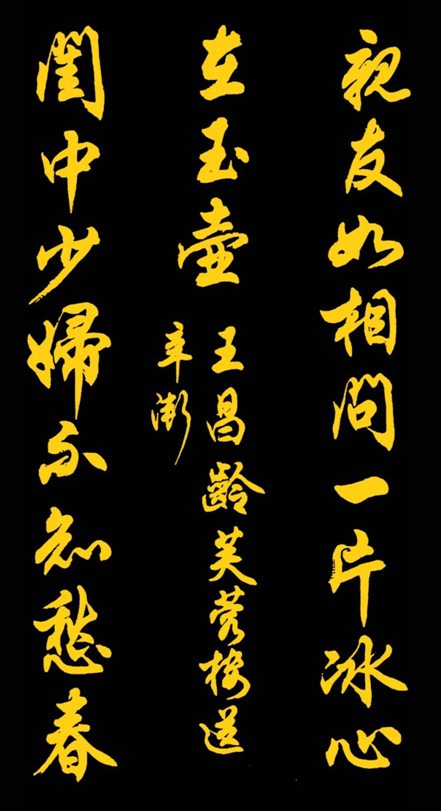 親友如相問一片冰心
在玉壺 王昌齡芙蓉楼送
辛漸
閨中少婦不知愁春